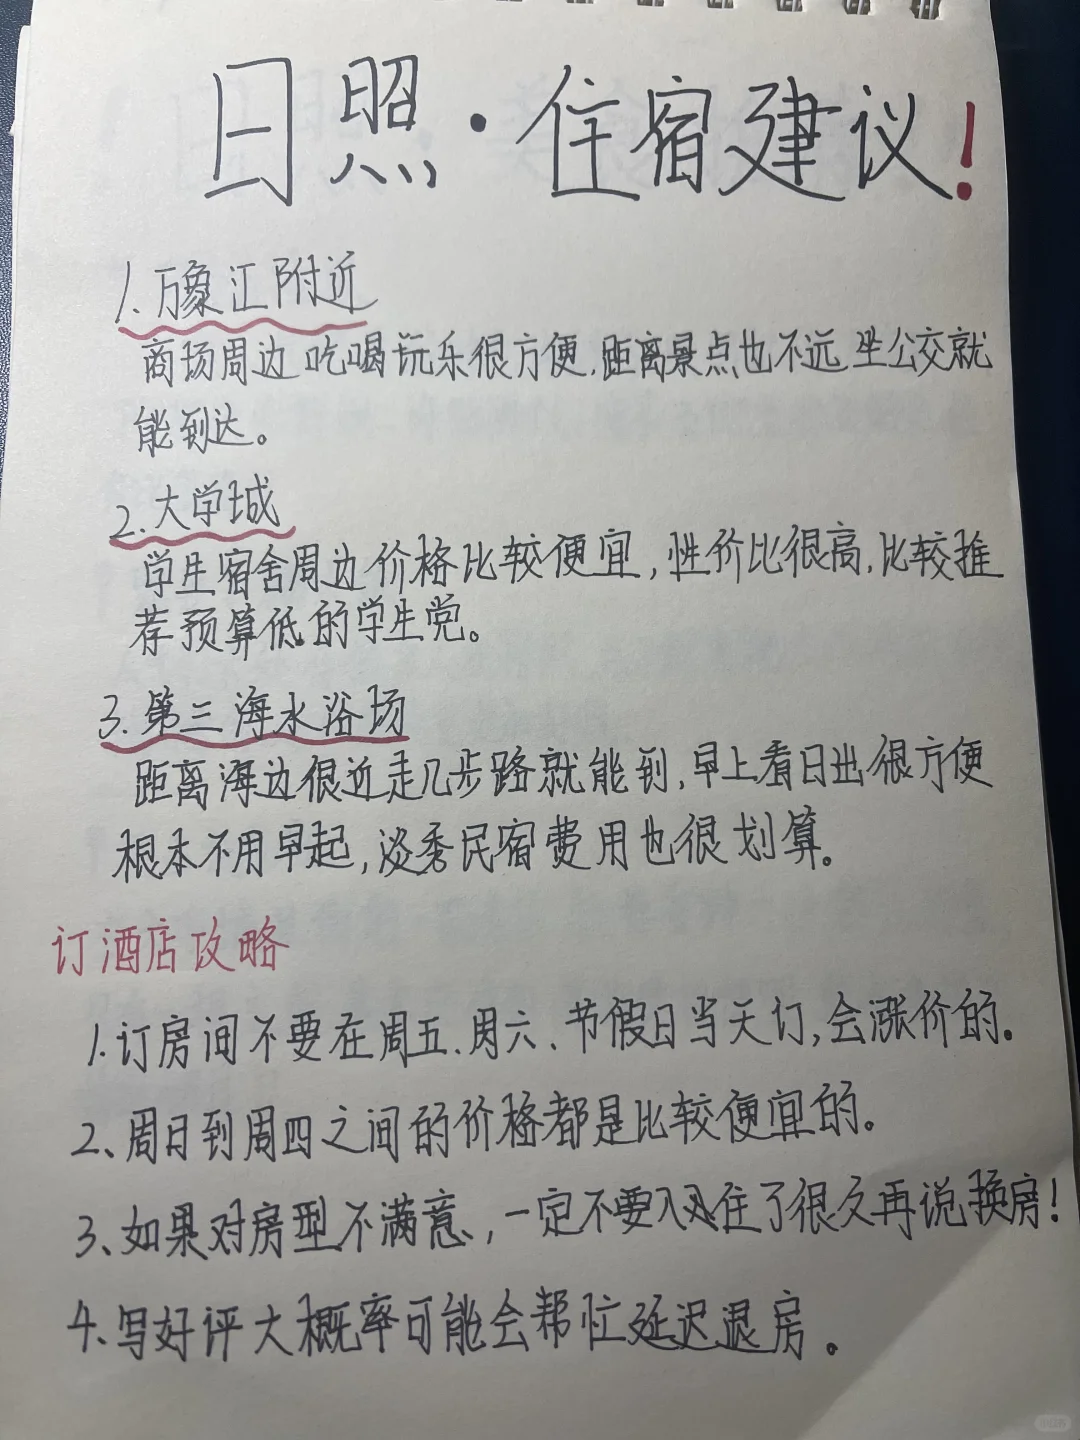 日照·住宿建议!
1.万象汇附近
商场周边吃喝玩乐很方便,距离景点也不远 坐公交就
能到达。
2.大学城
学生宿舍周边价格比较便宜,性价比很高,比较推
荐预算低的学生党。
3.第三海水浴场
距离海边很近走几步路就能到,早上看日出很方便
根本不用早起,淡季民宿费用也很划算。
订酒店攻略
1.订房间不要在周五、周六、节假日当天订,会涨价的。
2、周日到周四之间的价格都是比较便宜的。
3、如果对房型不满意,一定不要入住了很久再说换房!
4、写好评大概率可能会帮忙延迟退房。